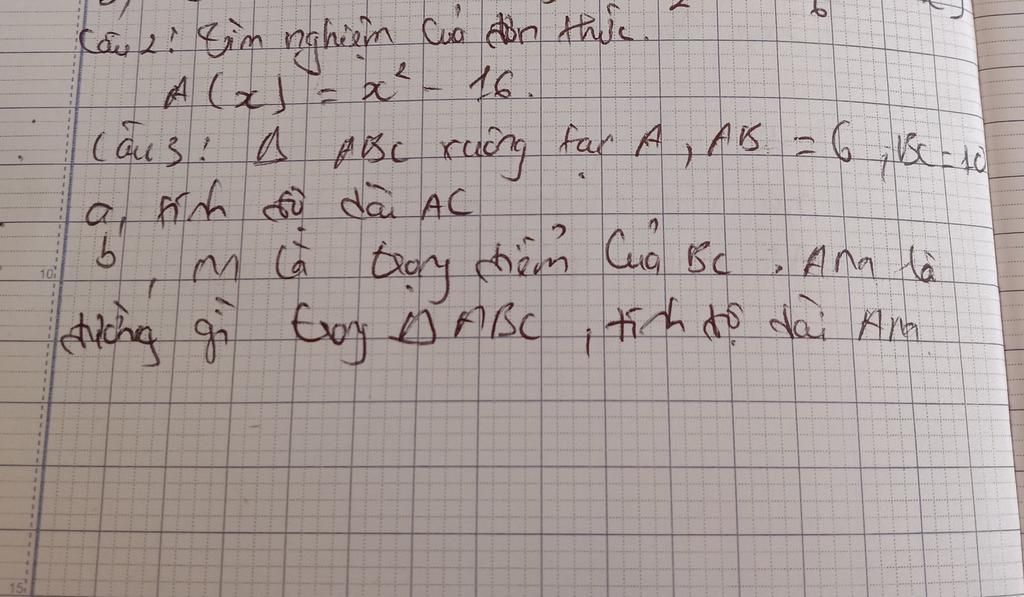 Câu 2: Tìm nghiệm Của đơn thức.
A(x) = x² - 16.
Câu 3: Δ ABC vuông tại A, AB = 6, BC = 10
a, tính độ dài AC
b, M là trọng điểm Của BC. AM là
đường gì trong Δ ABC, tính độ dài AM
10
15